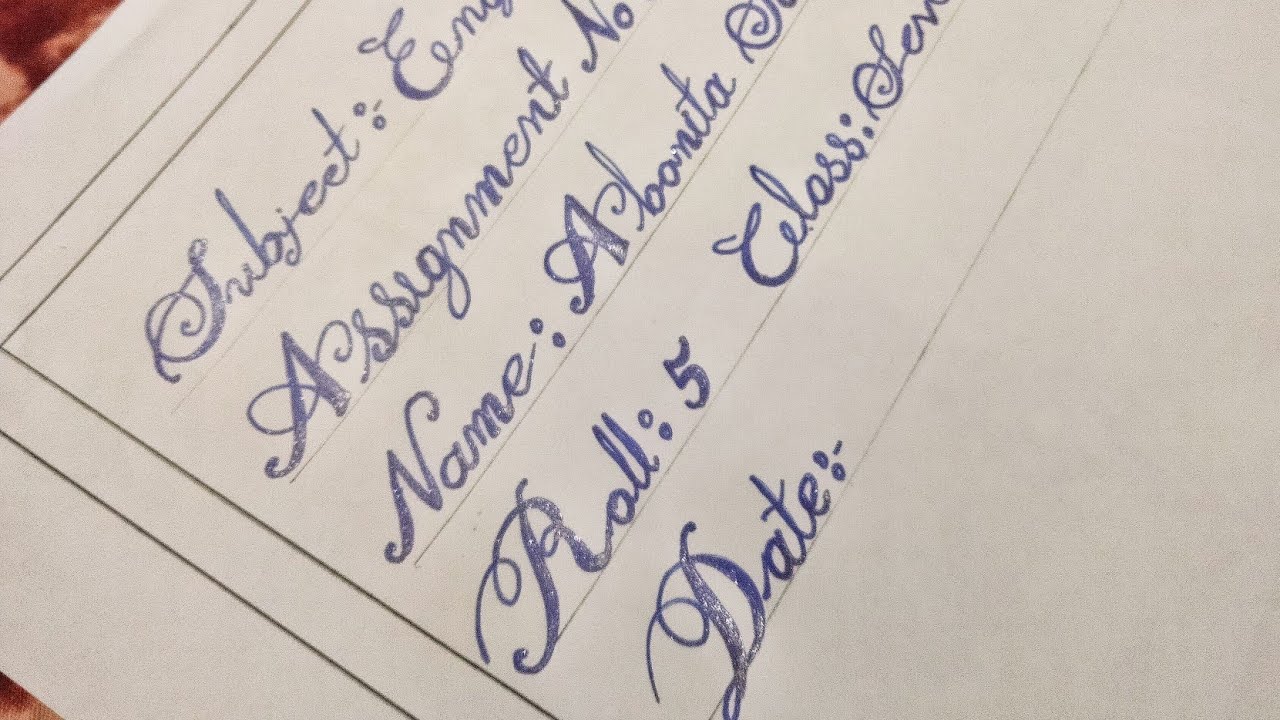 Subject:- Eng
Assignment No
Name: Abonita
Roll: 5 Class: Seven
Date:-